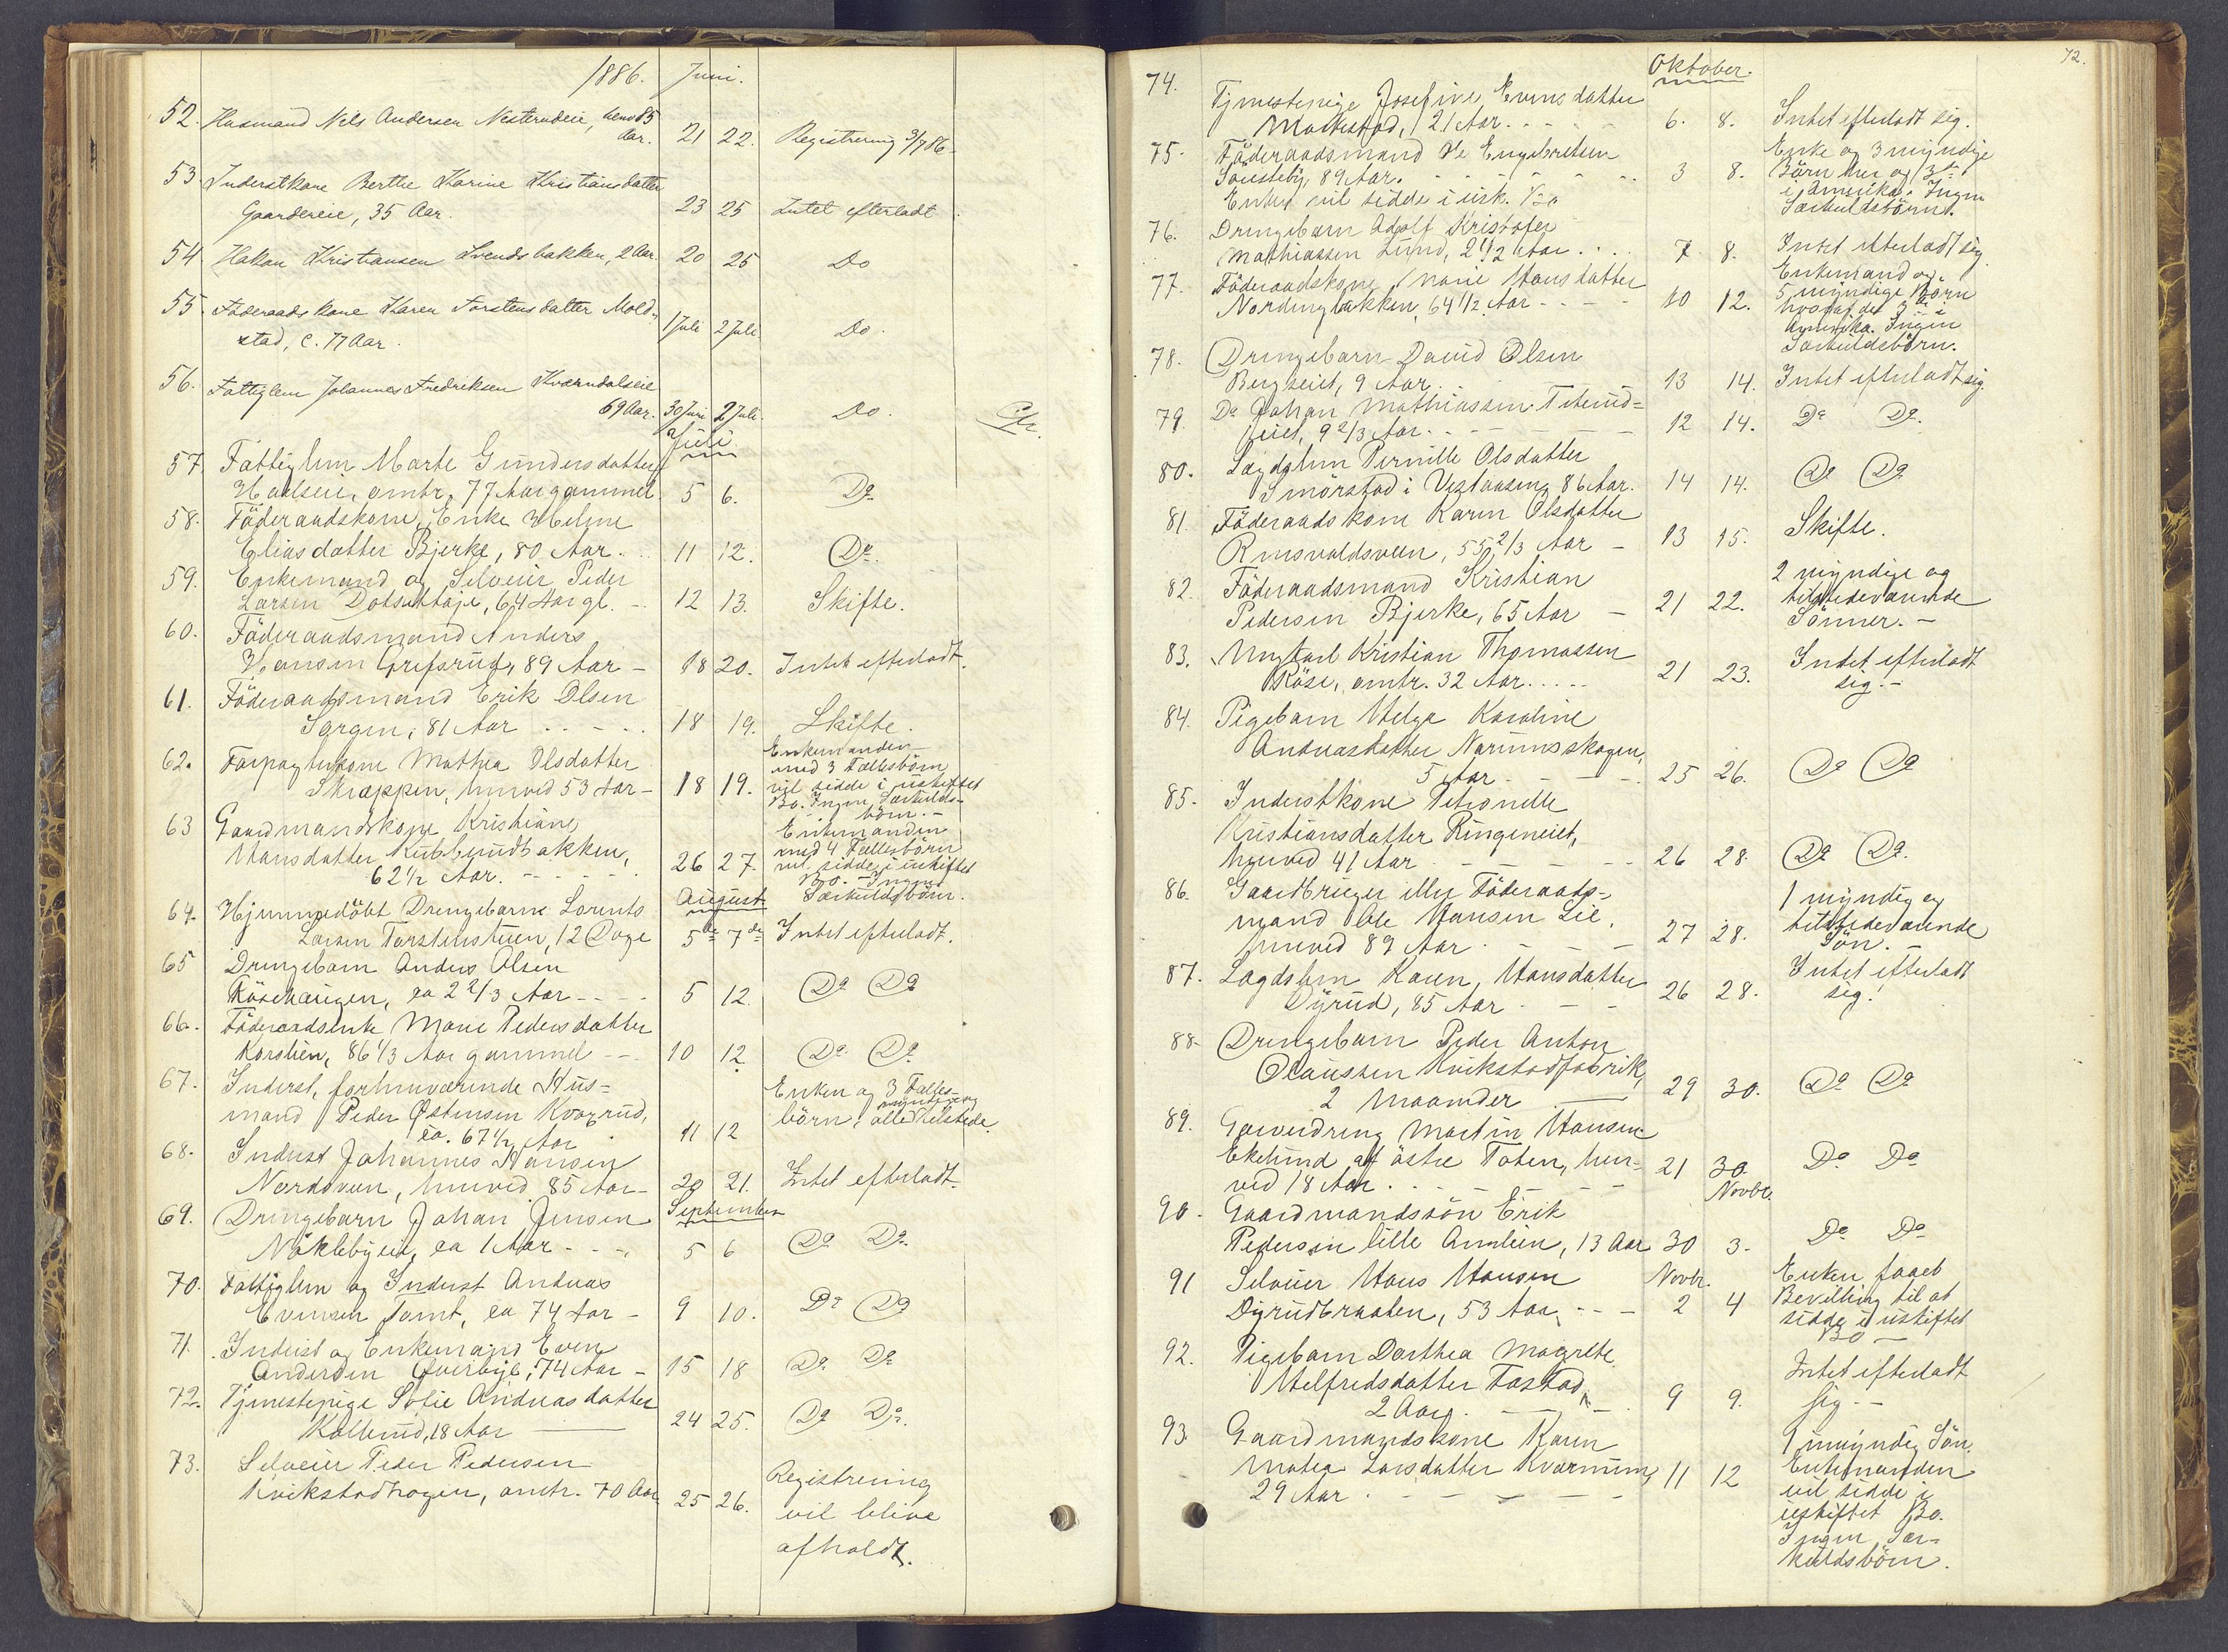 1886. Juni.
52. Husmand Nils Andersen Nesterudeie, henv 85
Aar. 21 22. Registrering 3/7 86.
53. Inderstkone Berthe Karine Kristiansdatter
Gaardereie, 35 Aar. 23 25 Intet efterladt.
54 Hakon Kristiansen Svendsbakken, 2 Aar. 20 25 Do
55. Föderaadskone Karen Torstensdatter Mold-
stad, c. 77 Aar. 1 Juli 2 Juli. Do.
56. Fattiglem Johannes Fredriksen Kværndalseie
69 Aar. 30 Juni 2 Juli. Do.
Juli
57. Fattiglem Marte Gundersdatter
Hoelseie, omtr. 77 Aar gammel 5 6. Do.
58. Föderaadskone, Enke Helene
Eliasdatter Bjerke, 80 Aar. 11 12. Do.
59. Enkemand og Selveier Peder
Larsen 64 Aar gl. 12 13. Skifte.
60. Föderaadsmand Anders
Hansen Grefsrud, 89 Aar - 18 20. Intet efterladt.
61. Föderaadsmand Erik Olsen
Sørgen, 81 Aar 18 19. Skifte.
62. Forpagterkone Mathea Olsdatter
Skræppen, henved 53 Aar - 18 19.
Enkemanden
med 3 Fællesbörn
vil sidde i uskiftet
Bo. Ingen Særkulds-
börn. -
63 Gaardmandskone Kristiane
Hansdatter Kubberudbakken,
62 1/2 Aar. 26 27.
Enkemanden
med 4 Fællesbörn
vil sidde i uskiftet
Bo. Ingen
Særkuldsbörn.
August.
64. Hjemmedöbt Drengebarn Lorents
Larsen Torstenstuen, 12 Dage 5de 7de Intet efterladt.
65 Drengebarn Anders Olsen
Rösehaugen, ca 2 2/3 Aar 5 12. Do Do
66. Föderaadsenke Marie Pedersdatter
Korslien, 86 1/3 Aar gammel 10 12. Do Do
67. Inderst, forhenværende Hus-
mand Peder Østensen Kvogrud,
ca. 67 1/2 Aar 11 12
Enken og 3 Fælles-
myndige og
börn, alle tilstede.
68. Inderst Johannes Hansen
Nordsveen, henved 85 Aar - 20 21. Intet efterladt.
September
69. Drengebarn Johan Jensen
Nöklebyeie, ca 1 Aar 5 6 Do Do.
70. Fattiglem og Inderst Andreas
Evensen Tømt, ca 74 Aar - 9 10. Do Do
71. Inderst og Enkemand Even
Andersen Øverbye, 74 Aar - 15 18 Do Do
72. Tjenestepige Sofie Andreasdatter
Kollerud, 18 Aar 24 25. Do Do.
73. Selveier Peder Pedersen
Kvikstadhagen, omtr. 70 Aar 25 26.
Registrering
vil blive
afholdt.
72.
Oktober.
74. Tjenestepige Josefine Evensdatter
Moldstad, 21 Aar. 6. 8. Intet efterladt sig.
75. Föderaadsmand Ole Engebretsen
Sønsteby, 89 Aar. 3 8.
Enken vil sidde i usk. Bo
Enke og 3 myndige
Börn her og 3 do
i Amerika. Ingen
Særkuldsbörn.
76. Drengebarn Adolf Kristofer
Mathiassen Lund, 2 1/2 Aar 7 8. Intet efterladt sig
77. Föderaadskone Marie Hansdatter
Nordengbakken, 64 1/2 Aar 10 12.
Enkemand og
5 myndige Börn
hvoraf de 3 i
Amerika. Ingen
Særkuldsbörn.
78. Drengebarn David Olsen
Bergseiet, 9 Aar. 13 14. Intet efterladt sig.
79. Do Johan Mathiassen Titerud-
eiet, 9 2/3 Aar. 12 14. Do Do.
80. Lægdslem Pernille Olsdatter
Smörstad i Vestaasen, 86 Aar. 14 14. Do Do
81. Föderaadskone Karen Olsdatter
Rensvoldsveen, 55 2/3 Aar - 13 15. Skifte.
82. Föderaadsmand Kristian
Pedersen Bjerke, 65 Aar - 21 22.
2 myndige og
tilstedeværende
Sönner. -
83. Ungkarl Kristian Thomassen
Röse, omtr. 32 Aar. 21 23. Intet efterladt
sig. -
84. Pigebarn Helga Karoline
Andreasdatter Narumsskogen,
5 Aar 25 26. Do Do
85. Inderstkone Petronelle
Kristiansdatter Ringeneiet,
henved 41 Aar 26 28. Do Do.
86. Gaardbruger eller Föderaads-
mand Ole Hansen Lie,
henved 89 Aar 27 28.
1 myndig og
tilstedeværende
Sön. -
87. Lægdslem Karen Hansdatter
Dyrud, 85 Aar 26 28. Intet efterladt
sig.
88. Drengebarn Peder Anton
Olaussen Kvikstadfabrik,
2 Maaneder 29 30. Do Do
89. Garverdreng Martin Hansen
Ekelund af östre Toten, hen-
ved 18 Aar. 21 30. Do Do
Novbr.
90. Gaardmandssön Erik
Pedersen lille Amlien, 13 Aar 30 3. Do Do
91 Selveier Hans Hansen Novbr.
Dyrudbraaten, 53 Aar 2 4
Enken faaet
Bevilling til at
sidde i uskiftet
Bo -
92. Pigebarn Dorthea Magrete
Helfredsdatter Fastad,
2 Aar. 9 9. Intet efterladt
sig. -
93. Gaardmandskone Karen
Matea Larsdatter Kværnum,
29 Aar. 11 12
1 umyndig Sön.
Enkemanden
vil sidde i
uskiftet Bo.
Ingen Sær-
kuldsbörn.